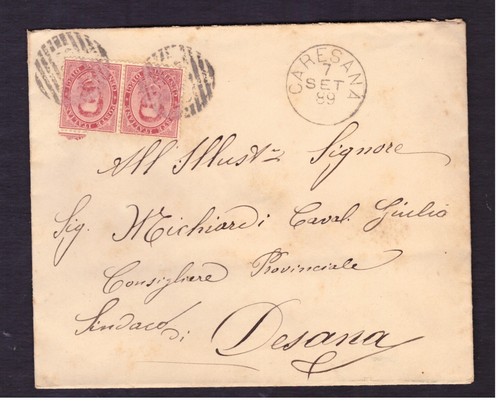 CARESANA
7
SET
89
All'Illustr. Signore
Sig. Michiardi Caval. Giulio
Consigliere Provinciale
Sindaco di Desana